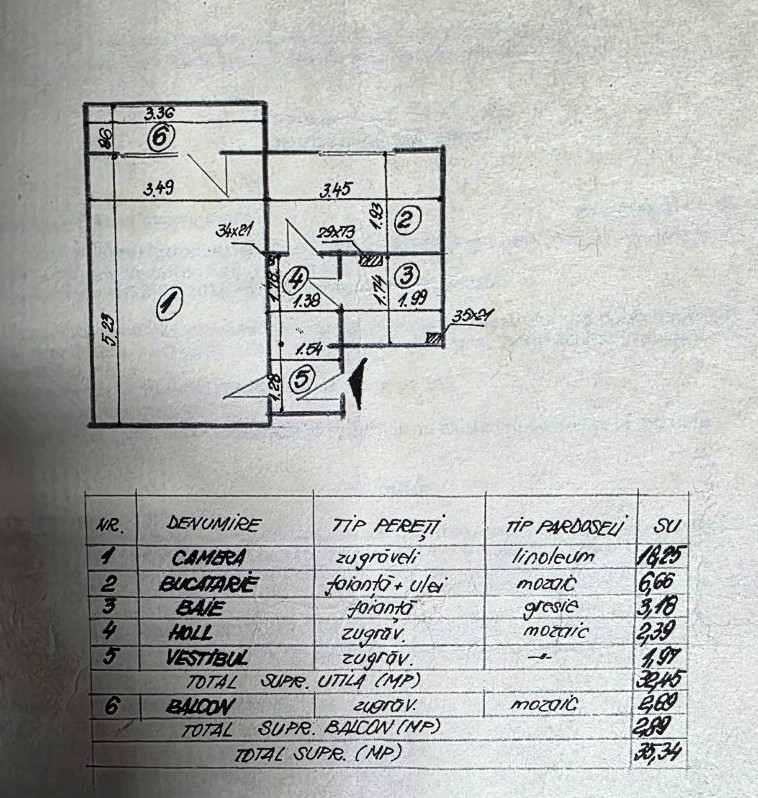 3.36
86
6
3.49
3.45
1.93
2
34x21
29x73
1.78
4
3
1.38
1.74
1.99
1
35x21
5.23
1.54
5
1.28
NR. DENUMIRE TIP PEREȚI TIP PARDOSELI SU
1 CAMERA zugrăveli linoleum 18,25
2 BUCATARIE faianță + ulei mozaic 6,66
3 BAIE faianță gresie 3,18
4 HOLL zugrăv. mozaic 2,39
5 VESTIBUL zugrăv. -"- 1,97
TOTAL SUPR. UTILA (MP) 32,45
6 BALCON zugrav. mozaic 2,89
TOTAL SUPR. BALCON (MP) 2,89
TOTAL SUPR. (MP) 35,34